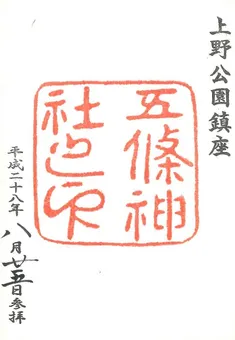 上野公園鎮座
五條神
社之印
平成二十八年
八月廿五日参拝